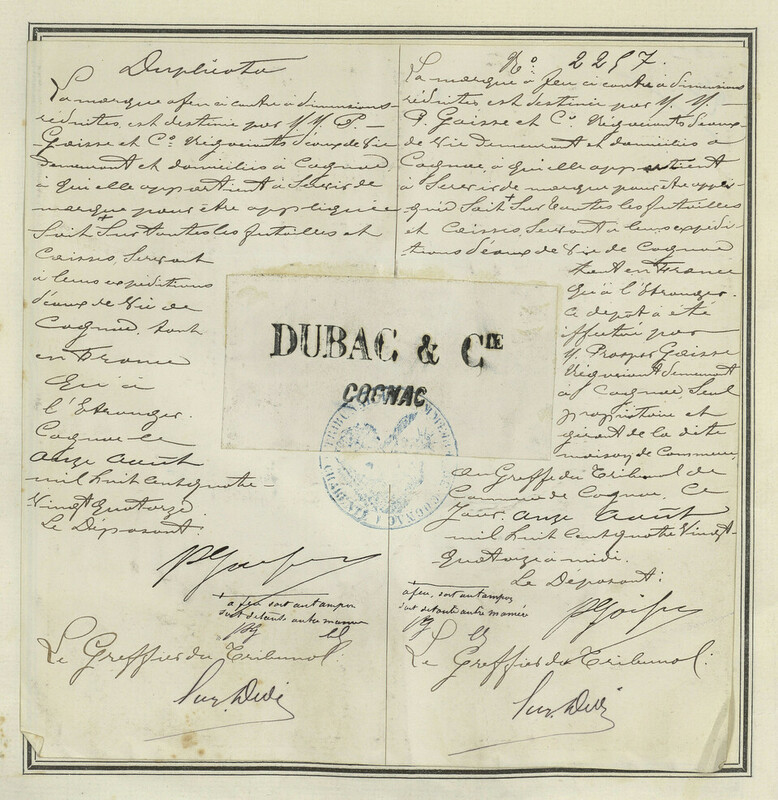 Duplicata
La marque à feu ci contre à dimensions
réduites, est destinée par M M P.
Gaisse et Cie Négociants d'eaux de Vie
demeurant et domiciliés à Cognac,
à qui elle appartient à Servir de
marque pour être appliquée
Soit + Sur toutes les futailles et
Caisses, Servant
à leurs expéditions
d'eaux de Vie de
Cognac, tant
en France
qu'à
l'Etranger.
Cognac le
onze Août
mil huit cent quatre
Vingt quatorze
Le Déposant:
PGaisse
+ à feu, soit au tampon
soit de toute autre manière
PG
Le Greffier du Tribunal:
No 2257.
La marque à feu ci contre à dimensions
réduites, est destinée par M. M.
P. Gaisse et Cie Négociants d'eaux
de Vie demeurant et domiciliés à
Cognac, à qui elle appartient
à Servir de marque pour être appli-
quée Soit + Sur toutes les futailles
et Caisses, Servant à leurs expédi-
tions d'eaux de Vie de Cognac
tant en France
qu'à l'Etranger.
Ce dépôt a été
effectué par
M. Prosper Gaisse
Négociant demeurant
à Cognac, Seul
propriétaire et
gérant de la dite
maison de Commerce,
au Greffe du Tribunal de
Commerce de Cognac, Ce
Jour, onze Août
mil huit Cent quatre Vingt-
quatorze à midi.
Le Déposant:
PGaisse
+ à feu, soit au tampon
soit de toute autre manière
PG
Le Greffier du Tribunal:
DUBAC & CIE
COGNAC
TRIBUNAL DE COMMERCE DE COGNAC
CHARENTE